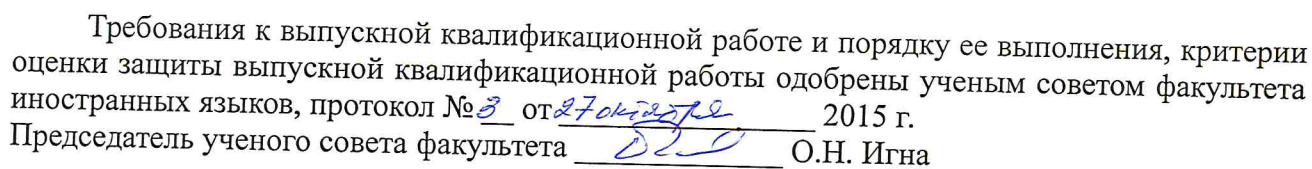 Требования к выпускной квалификационной работе и порядку ее выполнения, критерии
оценки защиты выпускной квалификационной работы одобрены ученым советом факультета
иностранных языков, протокол № 3 от 27 октября 2015 г.
Председатель ученого совета факультета О.Н. Игна